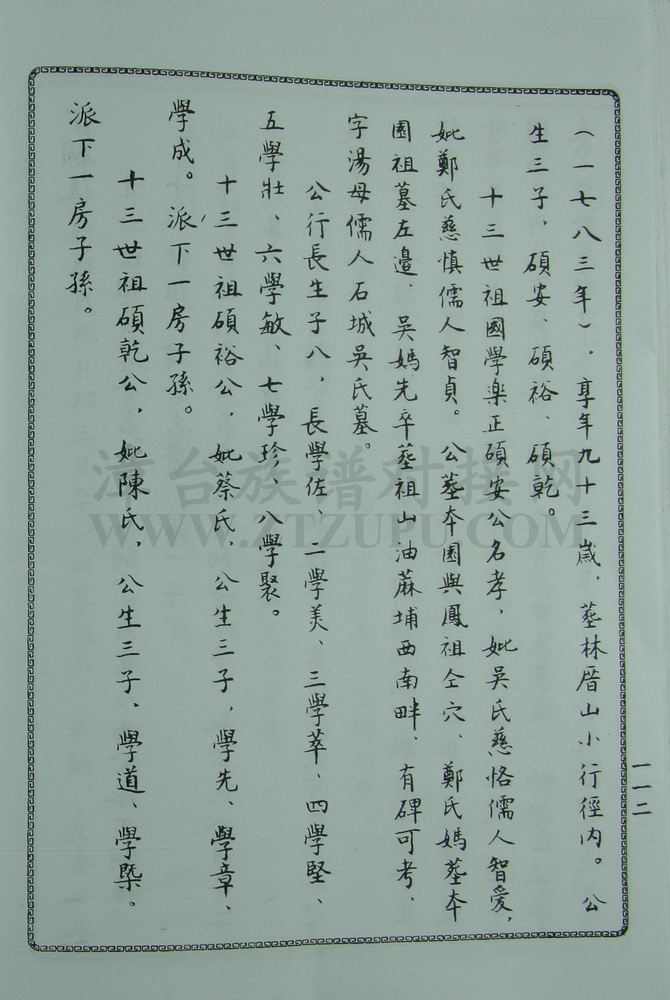 (一七八三年)，享年九十三歲，塟林厝山小行徑内。公
生三子，碩安、碩裕、碩乾。
十三世祖國學樂正碩安公名孝，妣吳氏慈恪儒人智愛，
妣鄭氏慈慎儒人智貞。公塟夲園與鳳祖仝穴、鄭氏媽塟夲
園祖墓左邊、吳媽先卒塟祖山油蔴埔西南畔、有碑可考、
字湯母儒人石城吳氏墓。
公行長生子八，長學佐、二學美、三學萃、四學堅、
五學壯、六學敏、七學珍、八學聚。
十三世祖碩裕公，妣蔡氏、公生三子，學先、學章、
學成。派下一房子孫。
十三世祖碩乾公，妣陳氏，公生三子、學道、學槩。
派下一房子孫。
一一二
漳台族谱对接网
WWW.ZTZUPU.COM